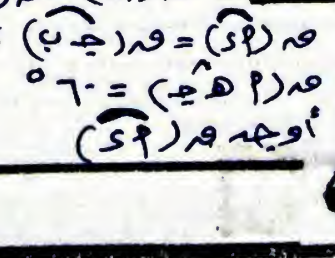 ق(أد) = ق(جب)
ق(أهج) = ٦٠°
أوجد ق(أد)